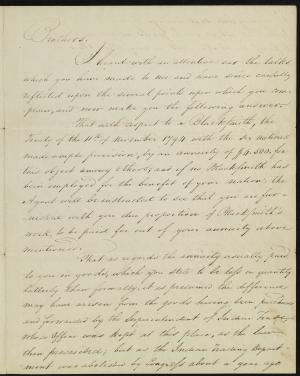 Brothers,
I heard with an attentive ear the talks
which you have made to me and have since carefully
reflected upon the several points upon which you com-
plain, and now make you the following answer.
That with respect to a Blacksmith, the
Treaty of the 11th of November 1794 with the Six Nations
made ample provision, by an annuity of $4,500, for
this object among others; as if no Blacksmith has
been employed for the benefit of your nation, the
Agent will be instructed to see that you are fur-
nished with your due proportion of Blacksmith's
work, to be paid for out of your annuity above
mentioned.
That as regards the annuity usually paid
to you in goods, which you state to be less in quantity
latterly than formerly, it is presumed the difference
may have arisen from the goods having been purchased
and forwarded by the Superintendent of Indian Trade,
whose Office was kept at this place, as the law
then prescribed; but as the Indian Trading Depart-
ment was abolished by Congress about a year ago